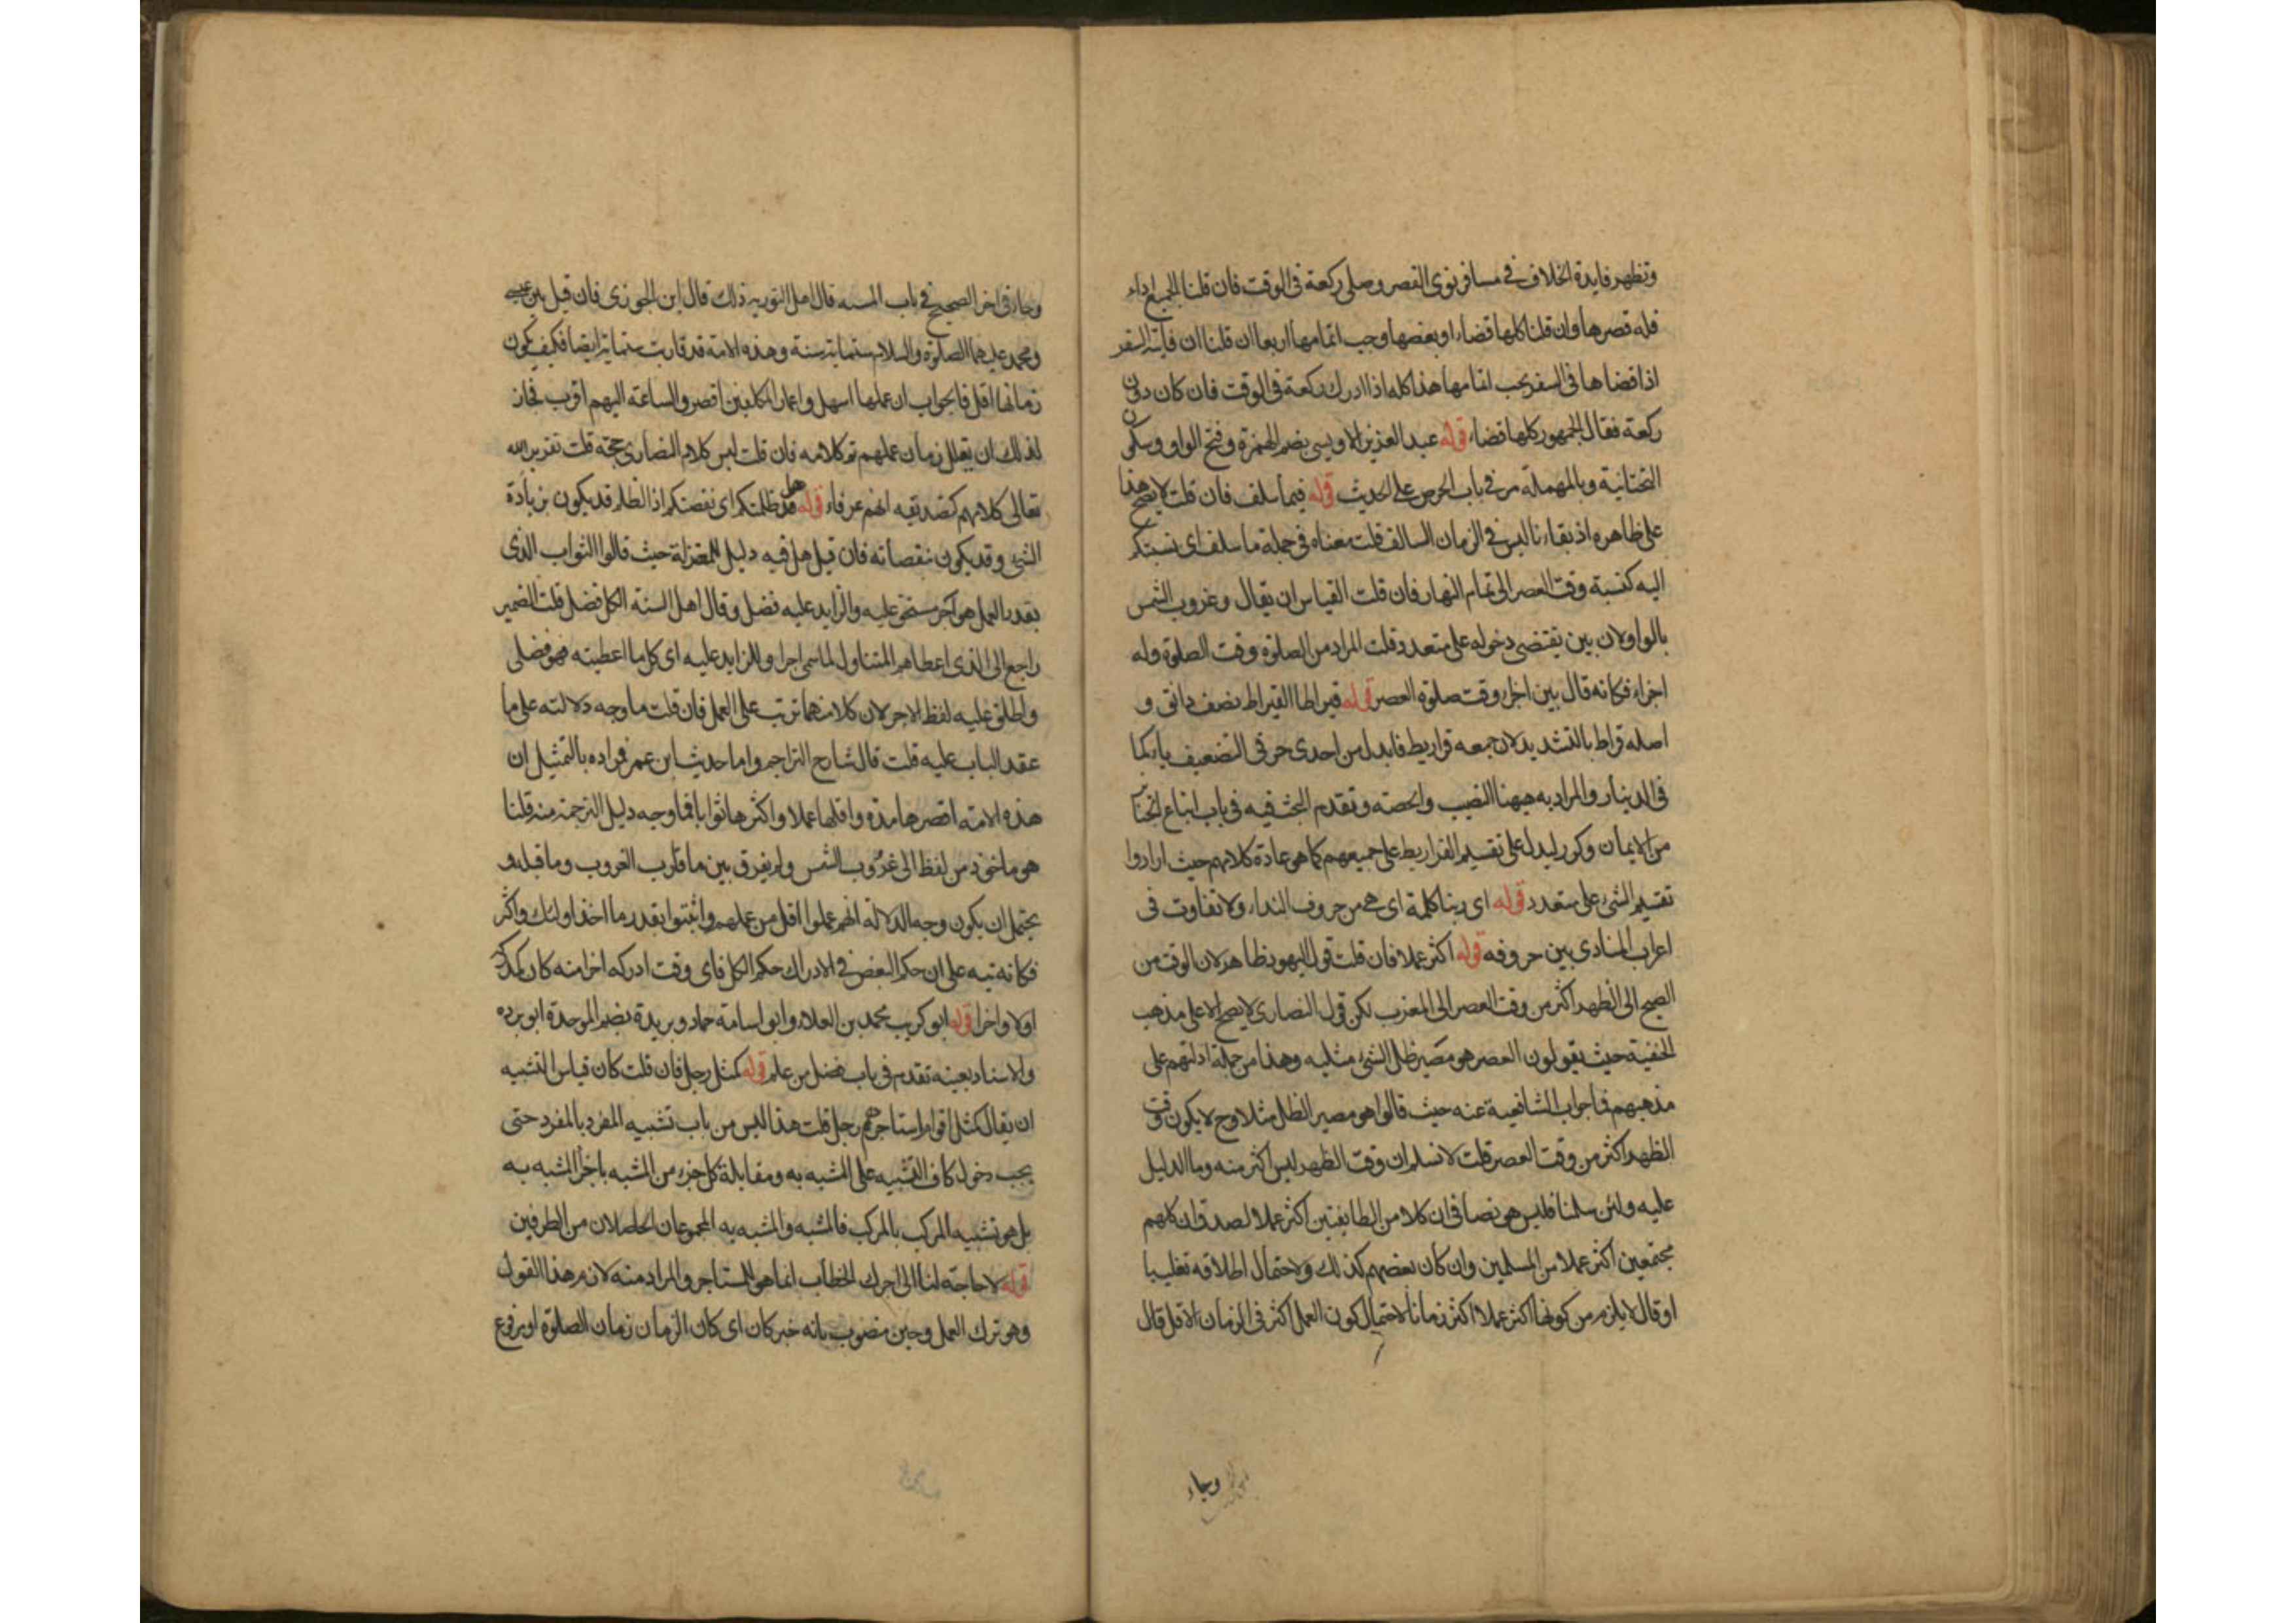 وتظهر فايدة الخلاف في مسافر نوى القصر وصلى ركعة في الوقت فان قلنا الجميع اداء
فله قصرها وان قلنا كلها قضاء او بعضها وجب اتمامها اربعا ان قلنا ان فايتة السفر
اذا قضاها في السفر يجب اتمامها هذا كله اذا ادرك ركعة في الوقت فان كان دون
ركعة فقال الجمهور كلها قضاء قوله عبد العزيز الاويسي بضم الهمزة وفتح الواو وسكون
التحتانية وبالمهملة مر في باب الحرص على الحديث قوله فيما سلف فان قلت لا يصح هذا
على ظاهره اذ بقاءنا ليس في الزمان السالف قلت معناه في جملة ما سلف اى نسبتكم
اليه كنسبة وقت العصر الى تمام النهار فان قلت القياس ان يقال وغروب الشمس
بالواو لان بين يقتضي دخوله على متعدد قلت المراد من الصلوة وقت الصلوة وله
اجزاء فكانه قال بين اجزاء وقت صلوة العصر قوله قيراطا القيراط نصف دانق و
اصله قراط بالتشديد لان جمعه قراريط فابدل من احدى حرفي التضعيف ياء كما
في الدينار والمراد به ههنا النصيب والحصة وتقدم البحث فيه في باب اتباع الجنائز
من الايمان وكرر ليدل على تقسيم القراريط على جميعهم كما هو عادة كلامهم حيث ارادوا
تقسيم الشئ على متعدد قوله اى ربنا كلمة اى هي من حروف النداء ولا تفاوت في
اعراب المنادى بين حروفه قوله اكثر عملا فان قلت قول اليهود ظاهر لان الوقت من
الصبح الى الظهر اكثر من وقت العصر الى المغرب لكن قول النصارى لا يصح الا على مذهب
الحنفية حيث يقولون العصر هو مصير ظل الشئ مثليه وهذا من جملة ادلتهم على
مذهبهم فما جواب الشافعية عنه حيث قالوا هو مصير الظل مثلا وح لا يكون وقت
الظهر اكثر من وقت العصر قلت لا نسلم ان وقت الظهر ليس اكثر منه وما الدليل
عليه ولئن سلمنا فليس هو نصا في ان كلا من الطايفتين اكثر عملا لصدق ان كلهم
مجتمعين اكثر عملا من المسلمين وان كان بعضهم كذلك ولاحتمال اطلاقه تغليبا
او قال لا يلزم من كونها اكثر عملا اكثر زمانا لاحتمال كون العمل اكثر في الزمان الاقل قال
وجاء
وجاء في اخر الصحيح في باب المشية قال اهل التورية ذلك قال ابن الجوزي فان قيل بين عيسى
ومحمد عليهما الصلوة والسلام ستماية سنة وهذه الامة قد قاربت ستماية ايضا فكيف يكون
زمانها اقل فالجواب ان عملها اسهل واعمار المكلفين اقصر والساعة اليهم اقرب فجاز
لذلك ان يقلل زمان عملهم تم كلامه فان قلت ليس كلام النصارى حجة قلت تقرير الله
تعالى كلامهم كتصديقه انهم عرفاء قوله هل ظلمتكم اى نقصتكم اذ الظلم قد يكون بزيادة
الشئ وقد يكون بنقصانه فان قيل هل فيه دليل للمعتزلة حيث قالوا الثواب الذى
بقدر العمل هو اجر مستحق عليه والزايد عليه فضل وقال اهل السنة الكل فضل قلت الضمير
راجع الى الذى اعطاهم المتناول لما سمي اجرا وللزايد عليه اى كل ما اعطيته فهو فضلي
واطلق عليه لفظ الاجر لان كلا منهما ترتب على العمل فان قلت ما وجه دلالته على ما
عقد الباب عليه قلت قال شارح التراجم واما حديث ابن عمر فمراده بالتمثيل ان
هذه الامة اقصرها مدة واقلها عملا واكثرها ثوابا فما وجه دليل الترجمة منه قلنا
هو ماخوذ من لفظ الى غروب الشمس ولم يفرق بين ما قارب الغروب وما قبله و
يحتمل ان يكون وجه الدلالة انهم عملوا اقل من عملهم واثبتوا بقدر ما اخذ اولئك واكثر
فكانه نبه على ان حكم البعض في الادراك حكم الكل فاى وقت ادركه اخرا منه كان كمدركه
اولا واخرا قوله ابو كريب محمد بن العلاء وابو اسامة حماد وبريدة بضم الموحدة ابو برده
والاسناد بعينه تقدم في باب فضل من علم قوله كمثل رجل فان قلت كان قياس التشبيه
ان يقال كمثل اقوام استاجرهم رجل قلت هذا ليس من باب تشبيه المفرد بالمفرد حتى
يجب دخول كاف التشبيه على المشبه به ومقابلة كل جزء من المشبه باجزاء المشبه به
بل هو تشبيه المركب بالمركب فالمشبه والمشبه به المجموعان الحاصلان من الطرفين
قوله لا حاجة لنا الى اجرك الخطاب انما هو للمستاجر والمراد منه لازم هذا القول
وهو ترك العمل وحين منصوب بانه خبر كان اى كان الزمان زمان الصلوة او مرفوع